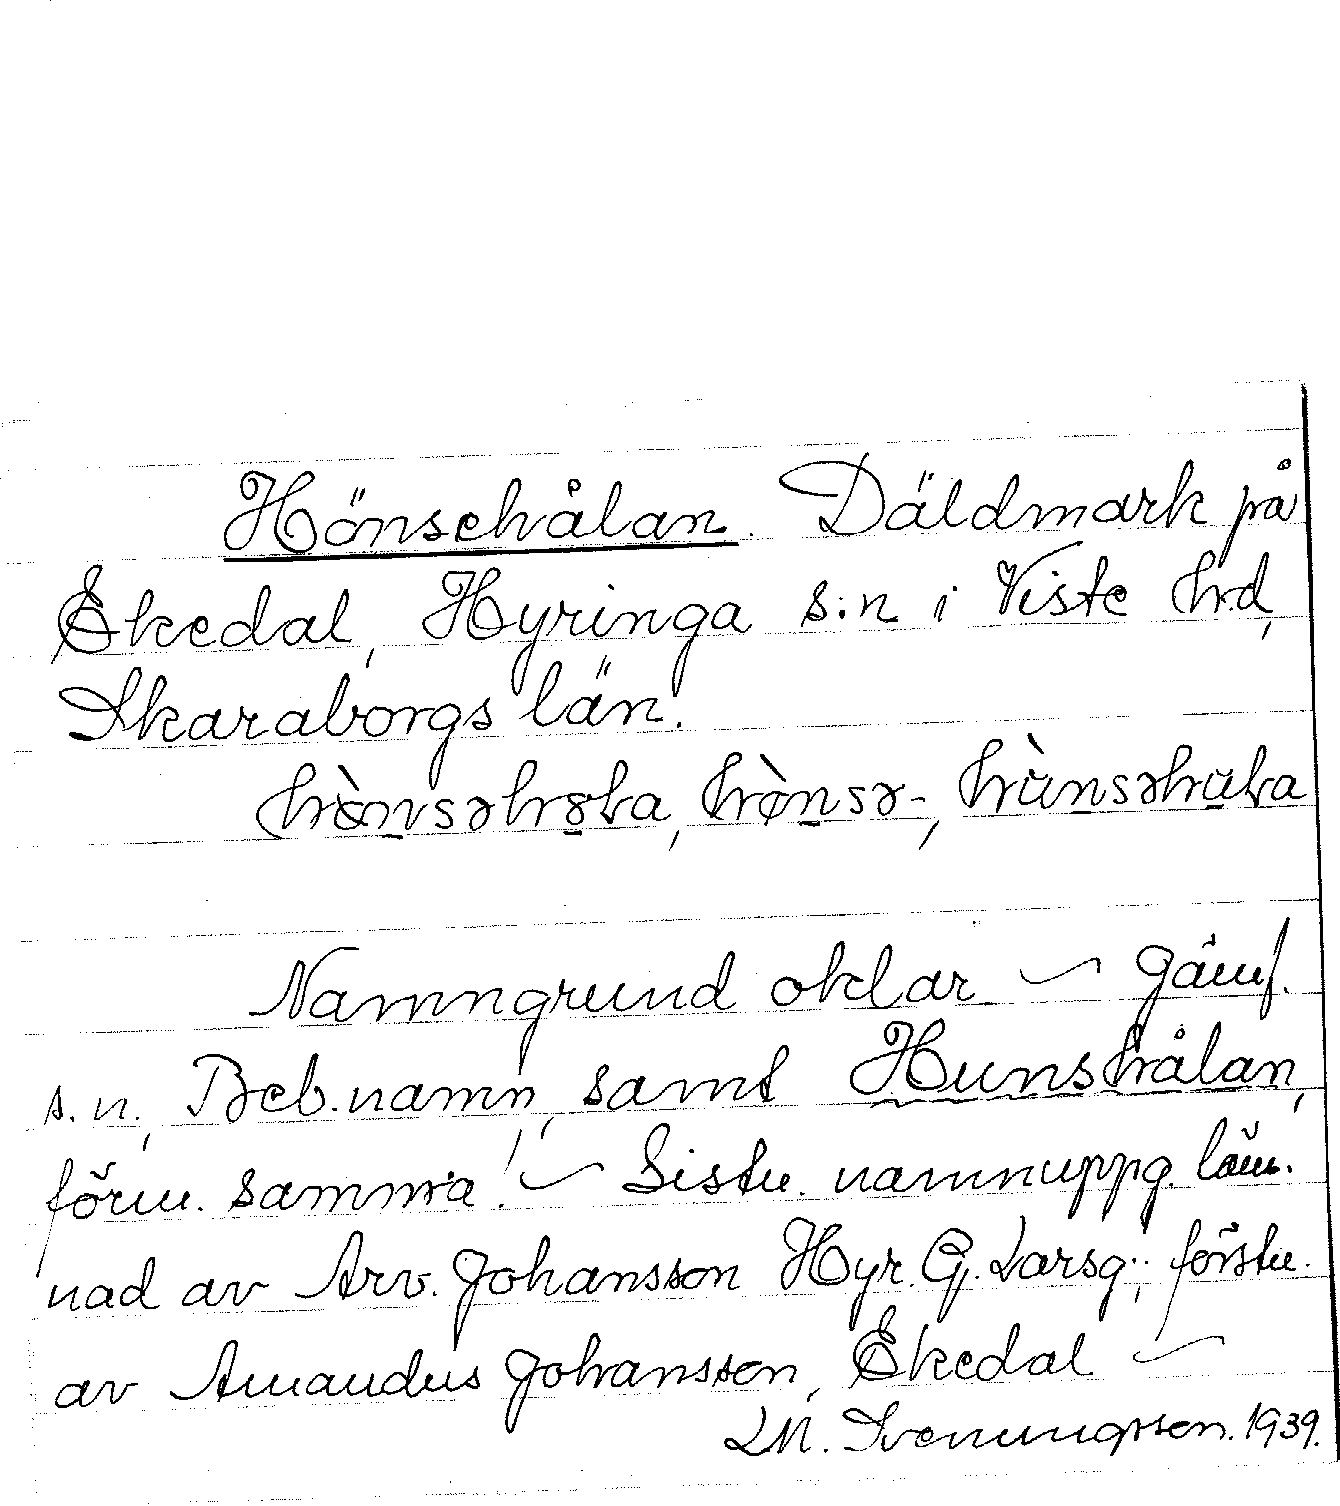 Hönsehålan. Däldmark på
Ekedal, Hyringa s:n i Viste hrd,
Skaraborgs län.
Namngrund oklar ~ Jämf.
s.n., Beb.namn, samt Hunshålan,
förm. samma! ~ Sistn. namnuppg. läm.
nad av Arv. Johansson Hyr. G. Larsg.; förstn.
av Amandus Johansson, Ekedal ~
LM. Svenungsson. 1939.